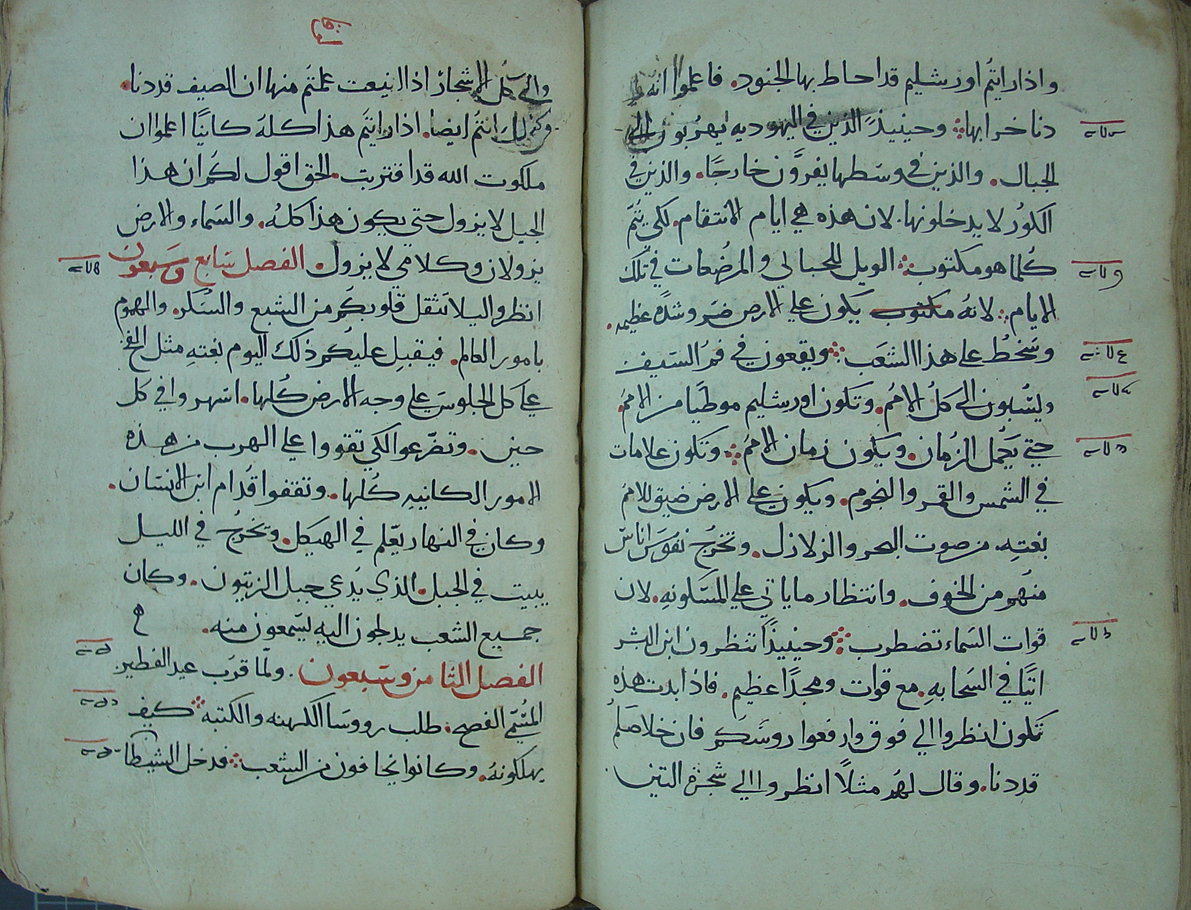 واذا رايتم اورشليم قد احاط بها الجنود. فاعلموا انه قد
دنا خرابها: وحينيذ الذين في اليهوديه يهربون الي
الجبال. والذين في وسطها يفرون خارجًا. والذين في
الكور لا يدخلونها. لان هذه هي ايام الانتقام. لكي يتم
كلما هو مكتوب: الويل للحبالي والمرضعات في تلك
الايام: لانه مكتوب يكون علي الارض ضر وشدة عظيمه.
وسخط علي هذا الشعب: ويقعون في فم السيف
ويسبون الي كل الامم. وتكون اورشليم موطيًا من الامم.
حتي يكمل الزمان. ويكون زمان الامم: وتكون علامات
في الشمس والقمر والنجوم. ويكون علي الارض ضيق للامم
بغته. من صوت البحر والزلازل. وتخرج نفوس اناس
منهم من الخوف. وانتظار ما ياتي علي المسكونه. لان
قوات السماء تضطرب: وحينيذًا تنظرون ابن البشر
اتيًا في السحابه. مع قوات ومجدًا عظيم. فاذا بدت هذه
تكون انظروا الي فوق وارفعوا روسكم فان خلاصكم
قد دنا. وقال لهم مثلاً انظروا الي شجرة التين
والي كل الاشجار اذا اينعت علمتم منها ان الصيف قد دنا.
وكذلك انتم ايضا. اذا رايتم هذا كله كاينًا اعلموا ان
ملكوت الله قد اقتربت. الحق اقول لكم ان هذا
الجيل لا يزول حتي يكون هذا كله. والسماء والارض
يزولان وكلامي لا يزول. الفصل سابع وسبعون
انظروا ليلا تثقل قلوبكم من الشبع والسكر. والهموم
بامور العالم. فيقبل عليكم ذلك اليوم بغته مثل الفخ
علي كل الجلوس علي وجه الارض كلها. اسهروا في كل
حين. وتضرعوا لكي تقووا علي الهرب من هذه
الامور الكانيه كلها. وتقفوا قدام ابن الانسان.
وكان في النهار يعلم في الهيكل. ويخرج في الليل
يبيت في الجبل. الذي يدعي جبل الزيتون. وكان
جميع الشعب يدلجون اليه يسمعون منه.
الفصل الثامن وسبعون. ولما قرب عيد الفطير
المسمي الفصح: طلب رووسا الكهنه والكتبه: كيف
يهلكونه. وكانوا يخافون من الشعب: فدخل الشيطان